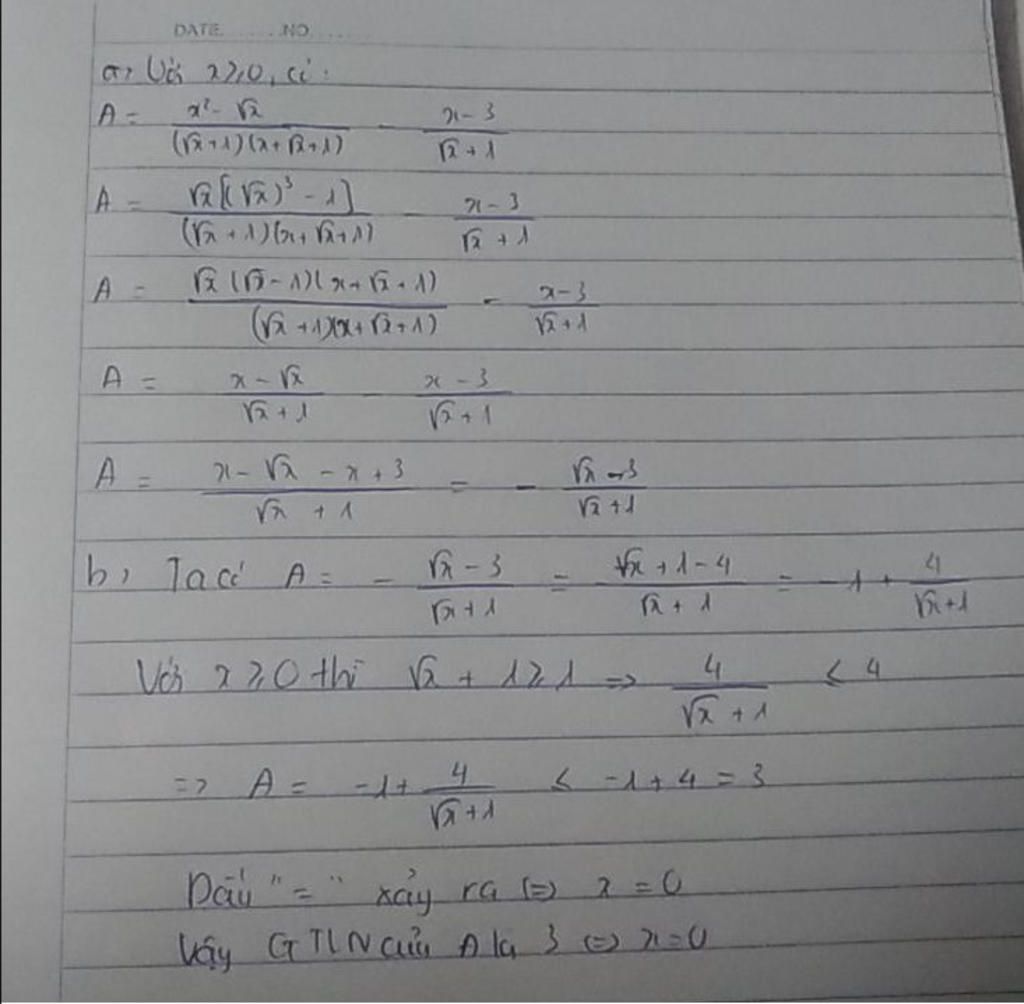 DATE.......NO.......
a, Với x ≥ 0, có:
A = (x² - √x)/((√x+1)(x+√x+1)) - (x-3)/(√x+1)
A = √x[(√x)³ - 1]/((√x+1)(x+√x+1)) - (x-3)/(√x+1)
A = √x(√x-1)(x+√x+1)/((√x+1)(x+√x+1)) - (x-3)/(√x+1)
A = (x-√x)/(√x+1) - (x-3)/(√x+1)
A = (x-√x-x+3)/(√x+1) = - (√x-3)/(√x+1)
b, Ta có A = - (√x-3)/(√x+1) = (√x+1-4)/(√x+1) = -1 + 4/(√x+1)
Với x ≥ 0 thì √x + 1 ≥ 1 => 4/(√x+1) ≤ 4
=> A = -1 + 4/(√x+1) ≤ -1 + 4 = 3
Dấu "=" xảy ra <=> x = 0
Vậy GTLN của A là 3 <=> x = 0